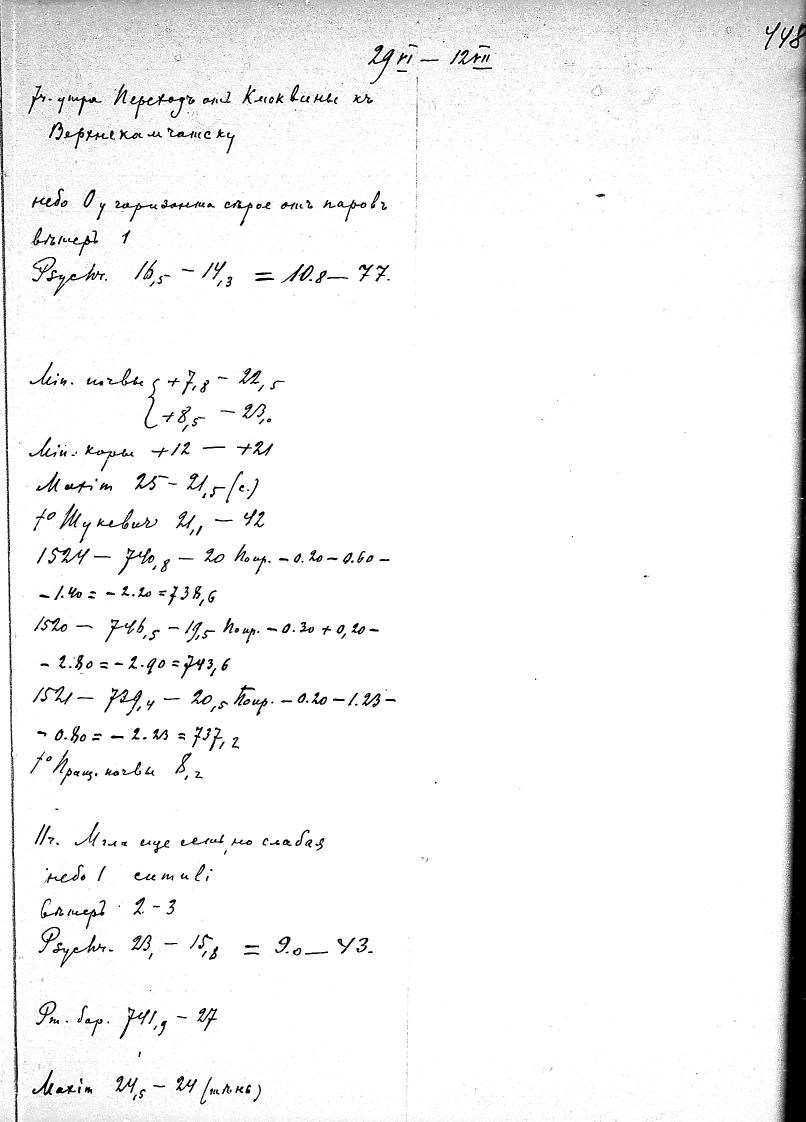 448
29 VI — 12 VII
7ч. утра Переходъ отъ Клюквины къ
Верхнекамчатску
небо 0 у горизонта сѣрое отъ паровъ
вѣтеръ 1
Psychr. 16,5 – 14,3 = 10.8 — 77.
Min. почвы { +7,8 – 22,5
{ +8,5 – 23,0
Min. коры +12 — +21
Maxim 25 – 21,5 (с.)
t° Шукевич 21,1 – 42
1524 — 740,8 – 20 Попр. – 0.20 – 0.60 –
– 1.40 = – 2.20 = 738,6
1520 — 746,5 – 19,5 Попр. – 0.30 + 0,20 –
– 2.80 = – 2.90 = 743,6
1521 — 739,4 — 20,5 Попр. – 0.20 – 1.23 –
– 0.80 = – 2.23 = 737,2
t° Пращ. почвы 8,2
11ч. Мгла еще есть, но слабая
небо 1 cumuli
вѣтеръ 2 – 3
Psychr. 23, – 15,8 = 9.0 — 43.
Рт. бар. 741,9 – 27
Maxim 24,5 – 24 (тѣнь)